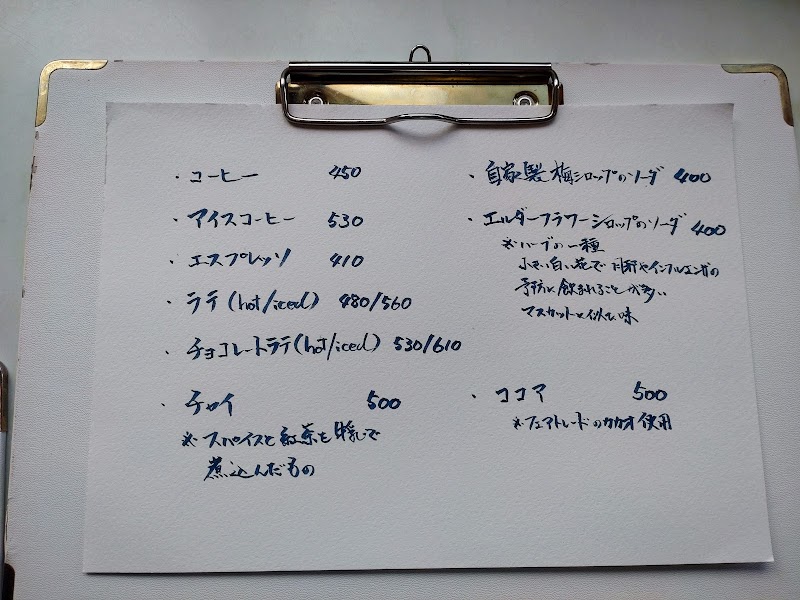 ・コーヒー 450
・アイスコーヒー 530
・エスプレッソ 410
・ラテ(hot/iced) 480/560
・チョコレートラテ(hot/iced) 530/610
・チャイ 500
※スパイスと紅茶を牛乳で
煮込んだもの
・自家製梅シロップのソーダ 400
・エルダーフラワーシロップのソーダ 400
※ハーブの一種
小さい白い花で 風邪やインフルエンザの
予防に飲まれることが多い
マスカットと似た味
・ココア 500
※フェアトレードのカカオ使用